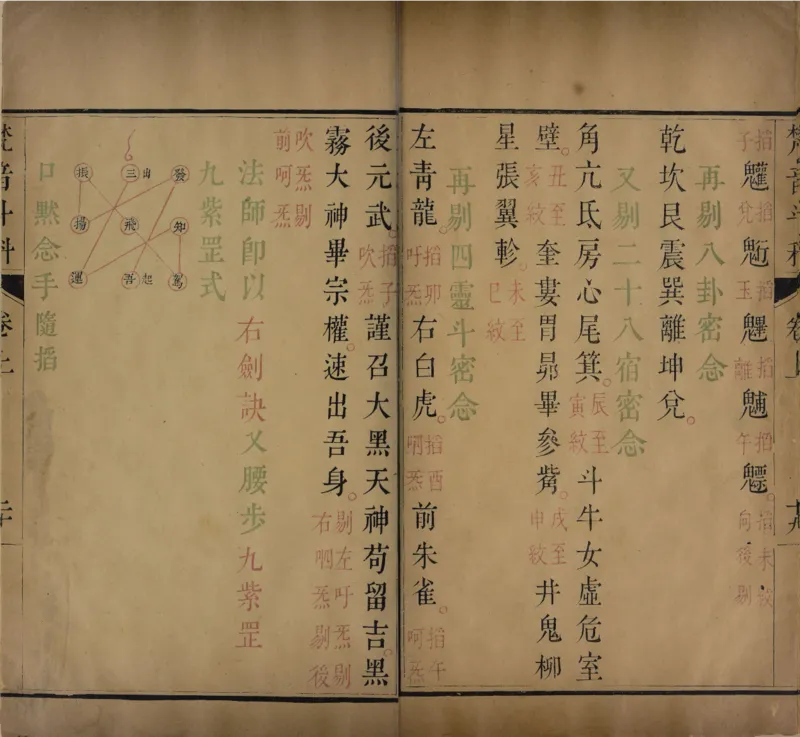 魓 䰢 魒 魓 魒
再剔八卦密念
乾坎艮震巽離坤兌。
又剔二十八宿密念
角亢氐房心尾箕。辰至寅紋斗牛女虛危室
壁。丑至亥紋奎婁胃昴畢參觜。戌至申紋井鬼柳
星張翼軫。未至巳紋
再剔四靈斗密念
左青龍。掐卯吁炁右白虎。掐酉呬炁前朱雀。掐午呵炁
後元武。掐子吹炁謹召大黑天神苟留吉。黑
霧大神畢宗權。速出吾身。剔左吁炁剔右呬炁剔後
吹炁剔前呵炁
法師即以右劍訣又腰步九紫罡
九紫罡式
發 三 山 振
知 飛 揚
駕 起 吾 運
口默念手隨掐
梵音斗科
卷上